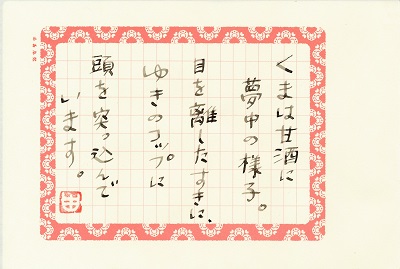 くまは甘酒に
夢中の様子。
目を離したすきに、
ゆきのコップに
頭を突っ込んで
います。